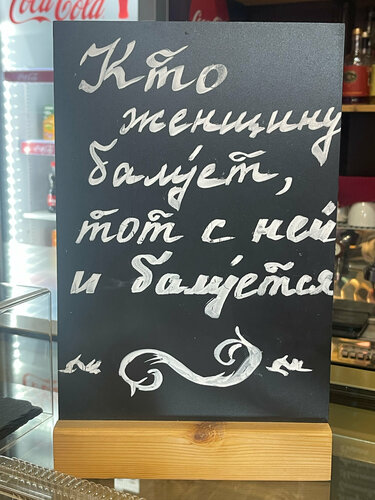 Coca-Cola
Кто
женщину
балует,
тот с ней
и балуется